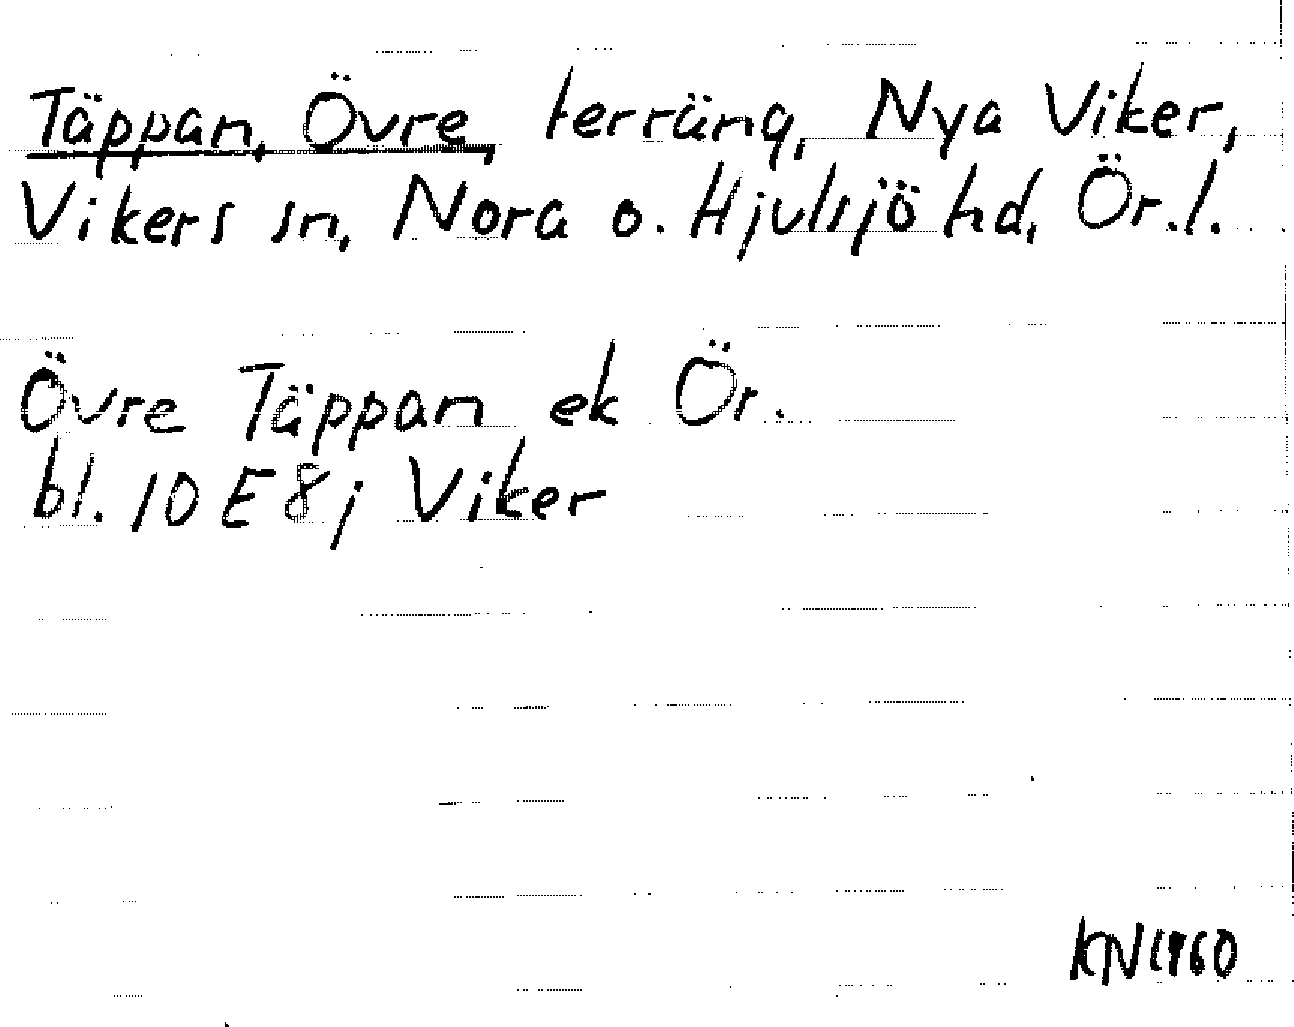 Täppan, Övre, terräng, Nya Viker,
Vikers sn, Nora o. Hjulsjö hd, Ör.l.
Övre Täppan ek Ör.
bl. 10 E 8 j Viker
KN 1960